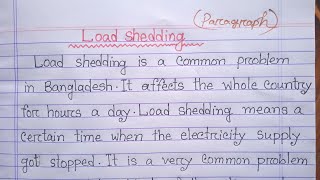 (Paragraph)
Load shedding
Load shedding is a common problem
in Bangladesh. It affects the whole country
for hours a day. Load shedding means a
certain time when the electricity supply
got stopped. It is a very common problem